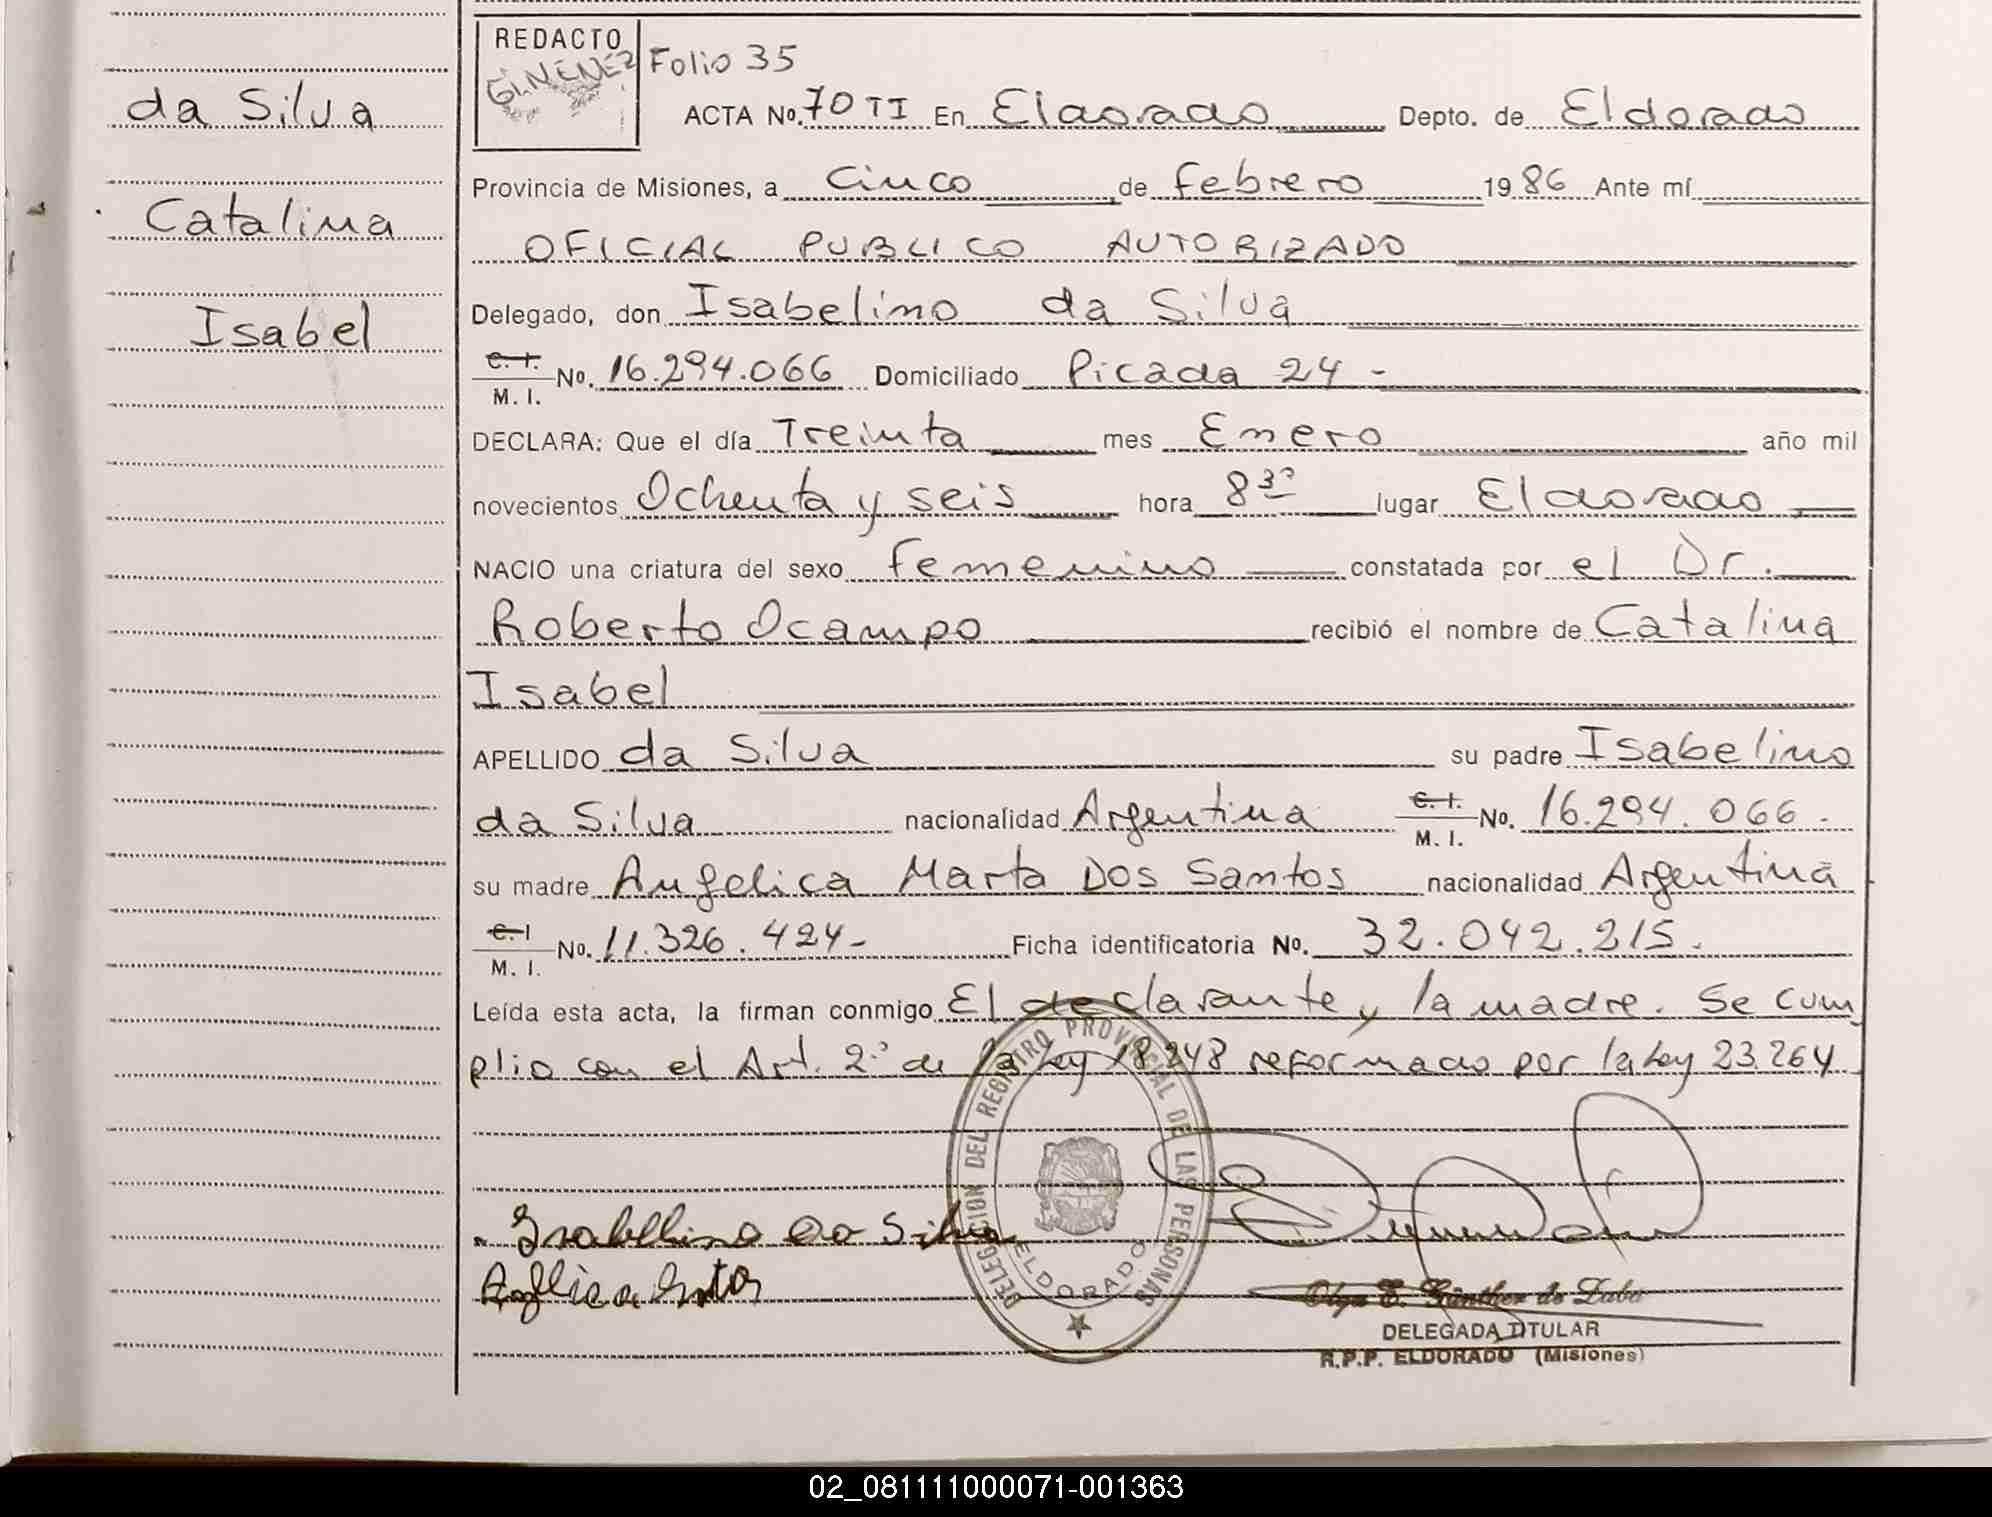 da Silva
Catalina
Isabel
REDACTO
GIMENEZ
Folio 35
ACTA No. 70 TI En Eldorado Depto. de Eldorado
Provincia de Misiones, a Cinco de Febrero 1986 Ante mí
OFICIAL PUBLICO AUTORIZADO
Delegado, don Isabelino da Silva
C. I. M. I. No. 16.294.066 Domiciliado Picada 24 -
DECLARA: Que el día Treinta mes Enero año mil
novecientos Ochenta y seis hora 8 30 lugar Eldorado
NACIO una criatura del sexo Femenino constatada por el Dr.
Roberto Ocampo recibió el nombre de Catalina
Isabel
APELLIDO da Silva su padre Isabelino
da Silva nacionalidad Argentina C. I. M. I. No. 16.294.066.
su madre Angelica Marta Dos Santos nacionalidad Argentina
C. I M. I. No. 11.326.424- Ficha identificatoria No. 32.042.215.
Leída esta acta, la firman conmigo El declarante y la madre. Se cum
plio con el Art. 2º de la Ley 18.248 reformado por la Ley 23.264
DELEGACION DEL REGISTRO PROVINCIAL DE LAS PERSONAS
ELDORADO
Isabellino Da Silva
Olga E. Günther de Daba
DELEGADA TITULAR
R.P.P. ELDORADO (Misiones)
02_081111000071-001363